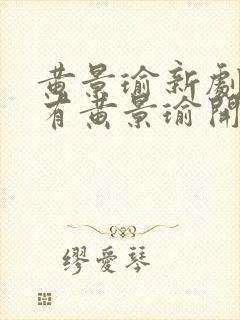 黄景瑜新劇
有黄景瑜開
繆愛琴